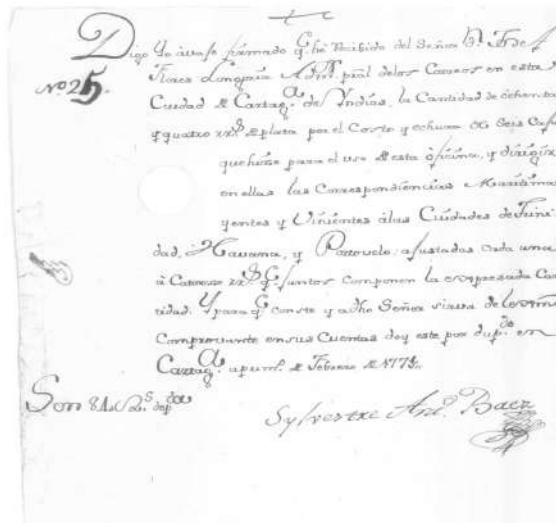 Digo Yo avajo firmado q.e he Recibido del Señor D.n
Flores Longoria Adm.or pral delos Correos en esta
No. 25
Ciudad de Cartag.a de Yndias, la Cantidad de ochenta
y quatro rr.s de plata por el Costo y echura de Seis Cax
que hize para el uso de esta oficina, y dirigir
en ellas las Correspondiencias Maritimas
yentes y Vinientes álas Ciudades de Trini
dad, Havana, y Portovelo; ajustadas cada una
à Catorse rr.s q.e Juntos componen la expresada Can
tidad. Y para q.e conste y adho Señor sirva de
Comprovante en sus Cuentas doy este por dup.do en
Cartag.a a prim.o de Febrero de
Son 84 r.s dep.ta
Sylvestre Ant.o Baez